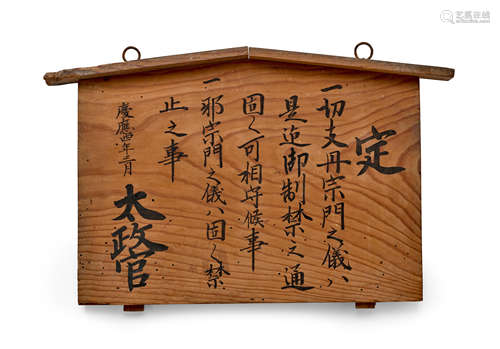 定
一切支丹宗門之儀ハ
是迄御制禁之通
固く可相守候事
一邪宗門之儀ハ固く禁
止之事
慶應四年三月
太政官